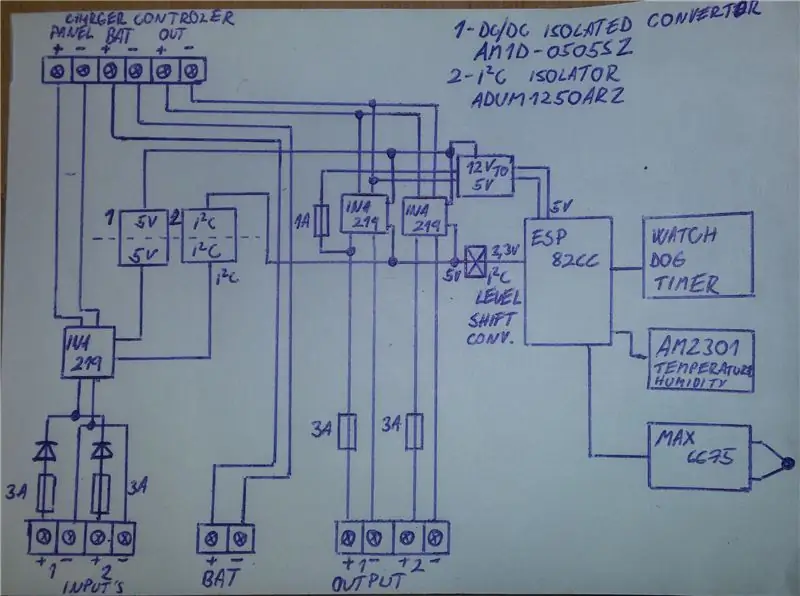 CHARGER CONTROLER
PANEL BAT OUT
+ - + - + -
1-DC/DC ISOLATED CONVERTOR
AM1D-0505SZ
2-I²C ISOLATOR
ADUM1250ARZ
12V TO
5V
1 5V
5V
2 I²C
I²C
I²C
1A
INA
219
INA
219
5V
5V
3,3V
I²C
LEVEL
SHIFT
CONV.
ESP
82CC
WATCH
DOG
TIMER
AM2301
TEMPERATURE
HUMIDITY
MAX
6675
INA
219
3A
3A
3A
3A
+ 1 - + 2 -
INPUT'S
+ -
BAT
+ 1 - + 2 -
OUTPUT